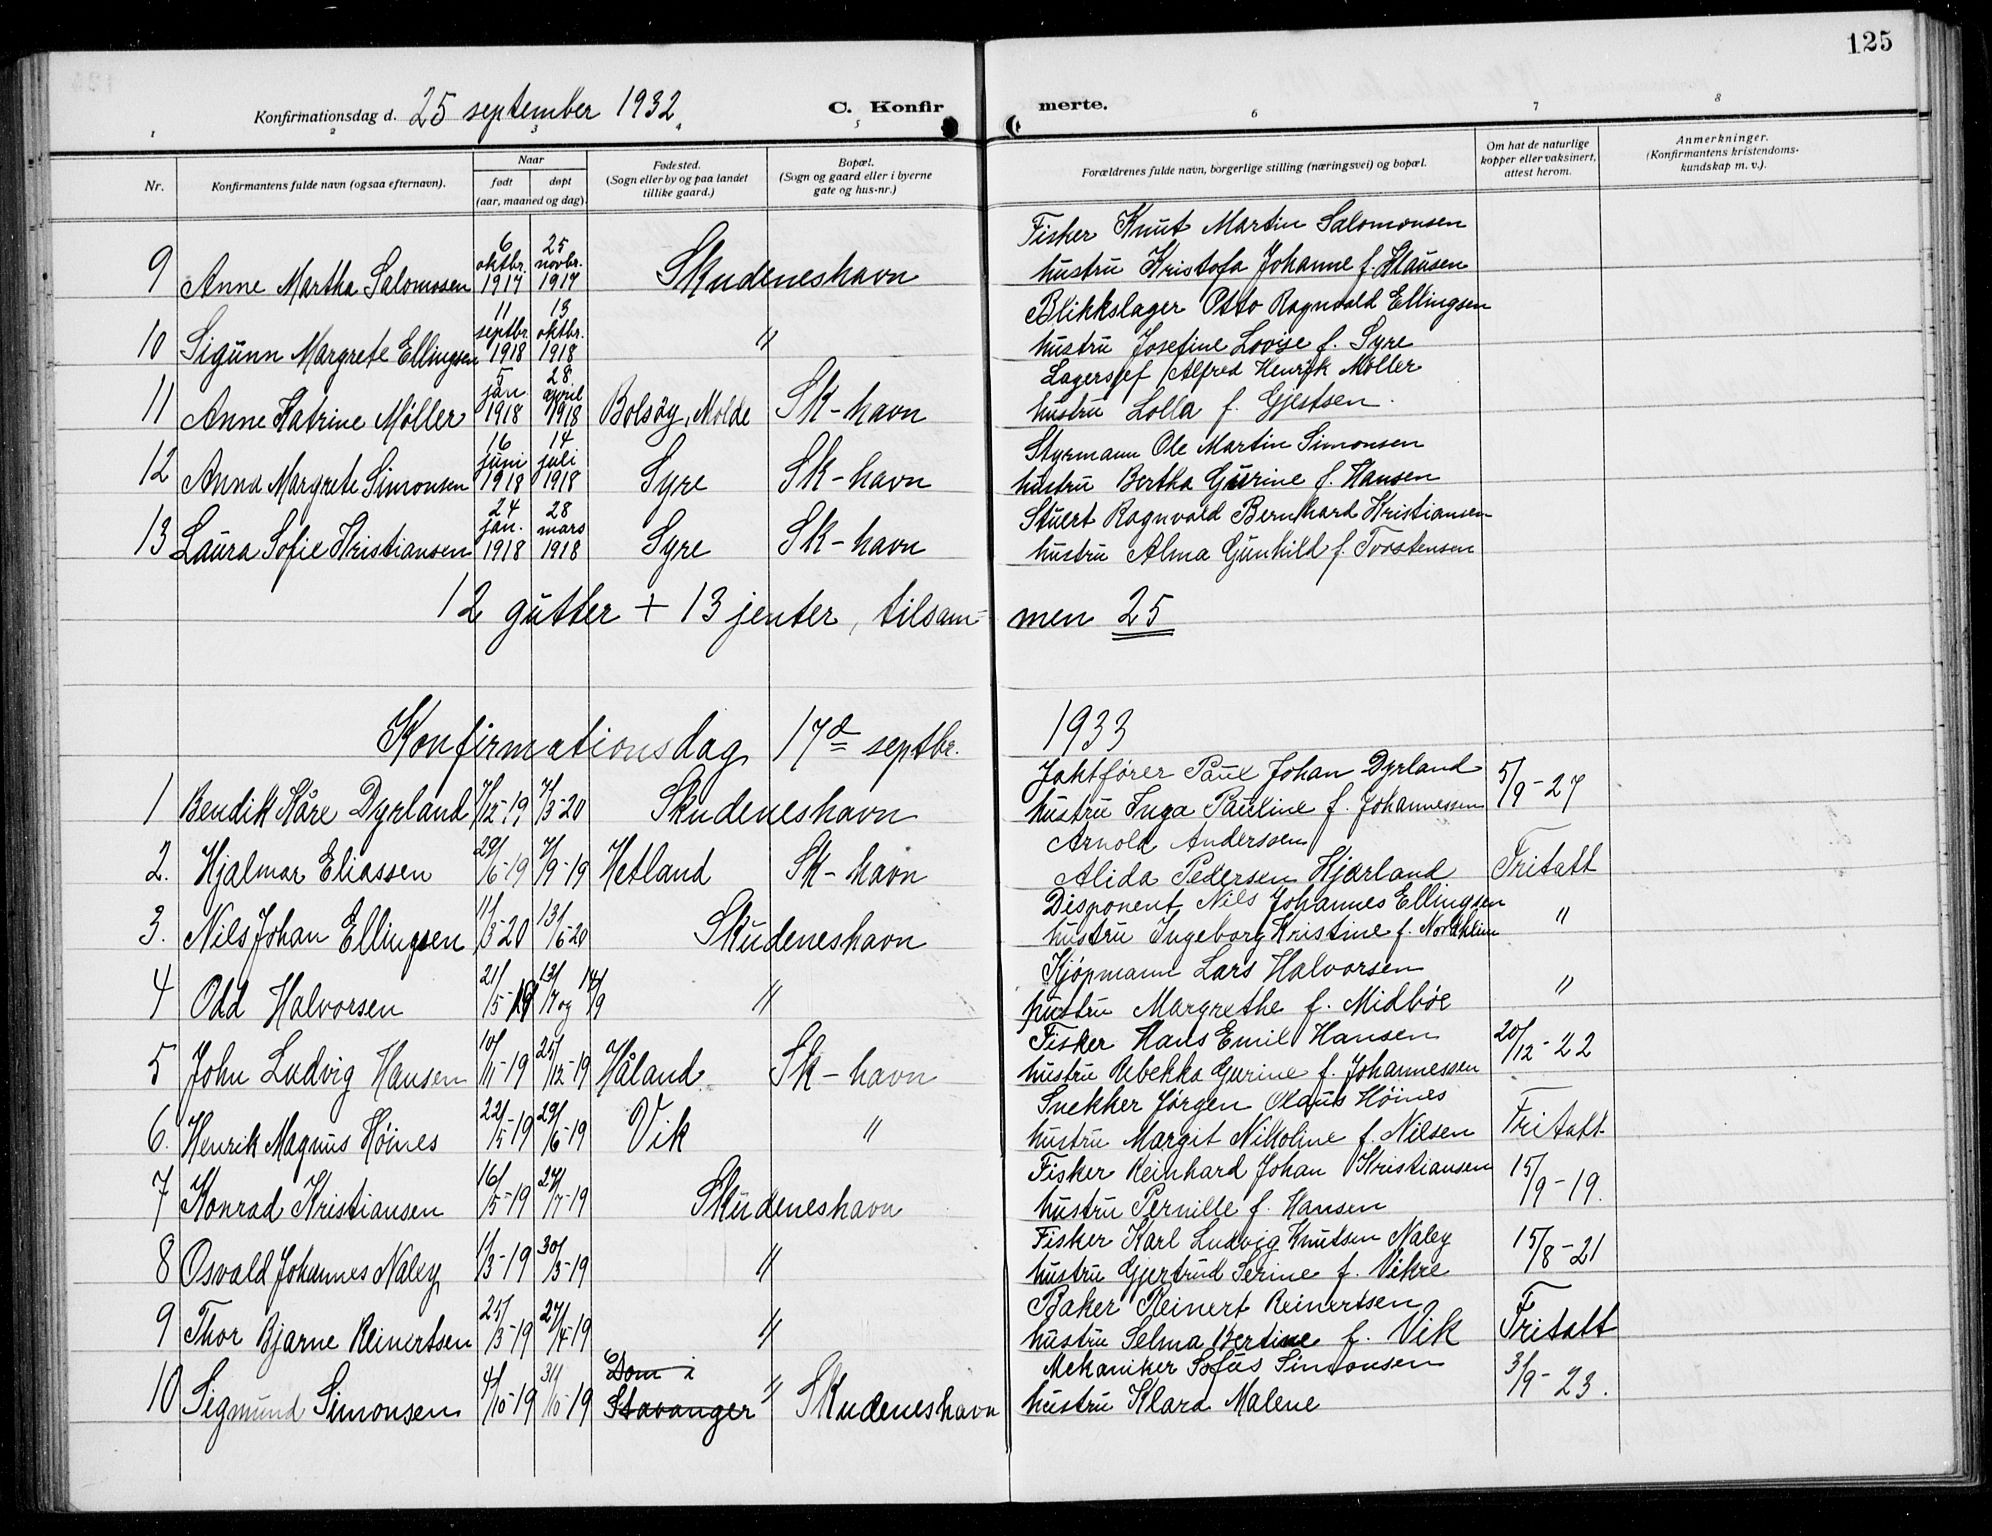 125
Konfirmationsdag d. 25 september 1932. C. Konfirmerte.
1 2 3 4 5 6 7 8
Nr. Konfirmantens fulde navn (ogsaa efternavn). Naar født døpt (aar, maaned og dag). Fødested. (Sogn eller by og paa landet tillike gaard.) Bopæl. (Sogn og gaard eller i byerne gate og hus-nr.) Forældrenes fulde navn, borgerlige stilling (næringsvei) og bopæl. Om hat de naturlige kopper eller vaksinert, attest herom. Anmerkninger. (Konfirmantens kristendomskundskap m. v.).
9 Anne Martha Salomosen 6 oktbr. 1917 25 novbr. 1917 Skudeneshavn Fisker Knut Martin Salomonsen
hustru Kristofa Johanne f. Klausen
10 Sigunn Margrete Ellingsen 11 septbr. 1918 13 oktbr. 1918 " Blikkslager Otto Ragnvald Ellingsen
hustru Josefine Lovise f. Syre
11 Anne Katrine Møller 5 jan 1918 28. april 1918 Bolsøy, Molde Sk-havn Lagersjef Alfred Henrik Møller
hustru Lolla f. Gjestsen.
12 Anna Margrete Simonsen 16 juni 1918 14 juli 1918 Syre Sk-havn Styrmann Ole Martin Simonsen
hustru Bertha Gurine f. Hansen
13 Laura Sofie Kristiansen 24 jan. 1918 28 mars 1918 Syre Sk-havn Stuert Ragnvald Bernhard Kristiansen
hustru Alma Gunhild f. Torstensen
12 gutter + 13 jenter, tilsammen 25
Konfirmationsdag 17d septbr. 1933
1 Bendik Kåre Dyrland 7/12-19 7/3-20 Skudeneshavn Jaktfører Paul Johan Dyrland 5/9-27
hustru Inga Pauline f. Johannessen
2. Hjalmar Eliassen 29/6-19 7/9-19 Hetland Sk-havn Arnold Anderssen
Alida Pedersen Kjærland Fritatt
3. Nils Johan Ellingsen 11/3-20 13/6-20 Skudeneshavn Disponent Nils Johannes Ellingsen "
hustru Ingeborg Kristine f. Nordheim
4 Odd Halvorsen 21/5-19 13/7 og 14/9 " Kjøpmann Lars Halvorsen "
hustru Margrethe f. Midbøe
5 John Ludvig Hansen 10/11-19 25/12-19 Håland Sk-havn Fisker Hans Emil Hansen 20/12-22
hustru Rebekka Gurine f. Johannessen
6. Henrik Magnus Høines 22/5-19 29/6-19 Vik " Snekker Jørgen Olaus Høines
hustru Margit Nikoline f. Nilsen Fritatt
7 Konrad Kristiansen 16/5-19 27/7-19 Skudeneshavn Fisker Reinhard Johan Kristiansen 15/9-19.
hustru Pernille f. Hansen
8 Osvald Johannes Naley 1/3-19 30/3-19 " Fisker Karl Ludvig Knutsen Naley 15/8-21
hustru Gjertrud Serine f. Vikre
9 Thor Bjarne Reinertsen 25/3-19 27/4-19 " Baker Reinert Reinertsen
hustru Selma Bertine f. Vik Fritatt
10 Sigmund Simonsen 4/10-19 31/10-19 Dom i Stavanger " Skudeneshavn Mekaniker Sofus Simonsen 3/9-23.
hustru Klara Malene